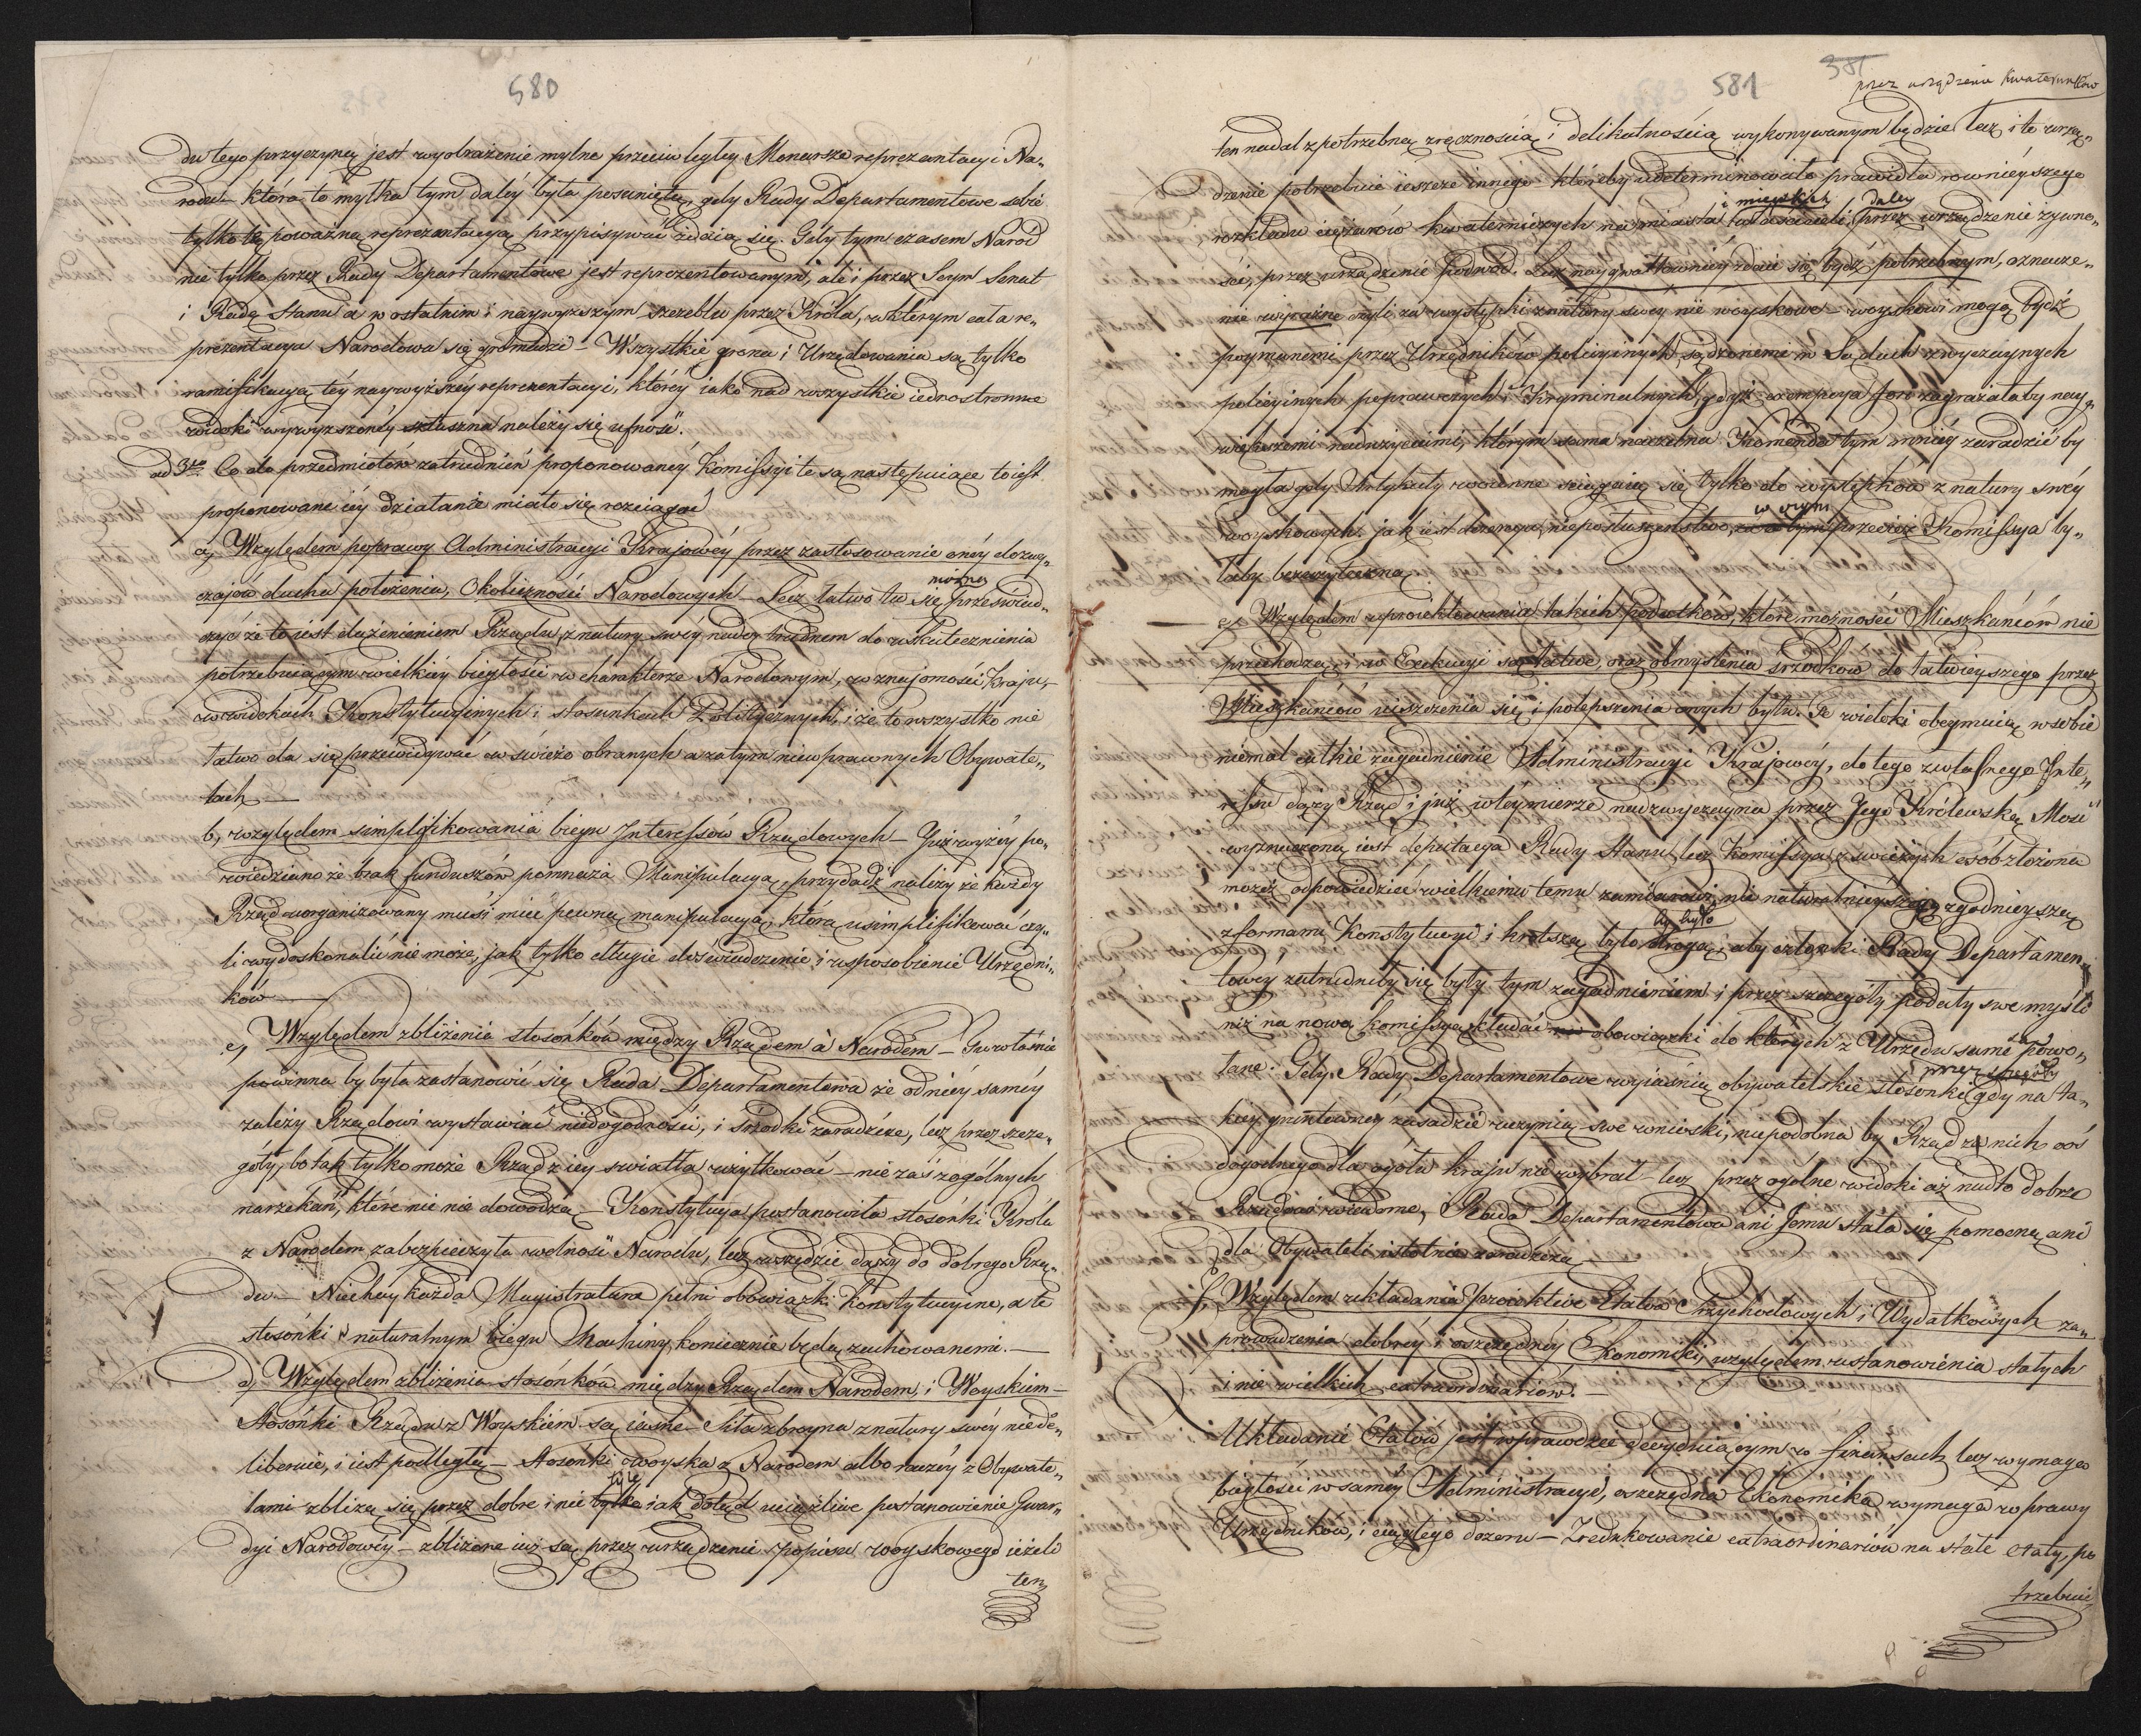 580
du tego przyczyną jest wyobrażenie mylne przeciw ległey Monarsze reprezentacyi Na„
rodu – która to myłka tym daléy była posunięta, gdy Rady Departamentowe sobie
tylko tę poważną reprezentacyą przypisywać zdaią się. Gdy tym czasem Naród
nie tylko przez Rady Departamentowe jest reprezentowanym, ale i przez Seym Senat
i Radę Stanu a w ostatnim i naywyższym szczeblu przez Króla, w którym cała re„
prezentacya Narodowa się gromadzi – Wszystkie grona i Urzędowania są tylko
ramifikacyą téy naywyższey reprezentacyi, któréy iako nad wszystkie iednostronne
widoki wywyższonéy słuszna należy się ufność.
ad 3tio Co do przedmiotów zatrudnień proponowanéy Komissyi te są następuiące to iest
proponowane iéy działanie miało się rozciągać
a, Względem poprawy Administracyi Krajowéy przez zastosowanie onéy do zwy„
czajów ducha położenia, Okoliczności Narodowych – Lecz łatwo tu się można przeświad„
czyć że to iest dążenieniem Rządu, z natury swéy nader trudnem do uskutecznienia
potrzebuiącym wielkiéy biegłości w charakterze Narodowym, w znajomości Kraju,
w widokach Konstytucyinych i stosunkach Politycznych, i że to wszystko nie
łatwo da się przewidywać w świeżo obranych a zatym niewprawnych Obywate„
lach –
b, względem simplifikowania biegu Interessów Rządowych – Już wyżéy po„
wiedziano że brak funduszów pomnaża Manipulacyą, przydadź należy że każdy
Rząd uorganizowany musi mieć pewną manipulacyą, którą usimplifikować czy„
li wydoskonalić nie może, jak tylko długie doświadczenie i usposobienie Urzędni„
ków –
c, Względem zbliżenia stosónków między Rządem a Narodem – Tu właśnie
powinna by była zastanowić się Rada Departamentowa że od niéy saméy
zależy Rządowi wystawiać niedogodności, i srzodki zaradzcze, lecz przez szcze„
góły, bo tak tylko może Rząd z iey swiatła użytkować – nie zaś z ogólnych
narzekań, które nic nie dowodzą – Konstytucya postanowiła stosónki Króla
z Narodem zabezpieczyła wolność Narodu, lecz wszędzie dąży do dobrego Rzą„
du – Niechay każda Magistratura pełni obowiązki Konstytucyine, a te
stosónki w naturalnym biegu Machiny koniecznie będą zachowanemi. –
d, Względem zbliżenia stosónków między Rządem Narodem, i Woyskiem –
Stosónki Rządu z Woyskiem są iasne – Siła zbroyna z natury swéy nie de„
liberuie, i iest podległą – Stosonki woyska z Narodem albo raczéy z Obywate„
lami zbliżą się przez dobre i nie tyle tylko iak dotąd uciążliwe postanowienie Gwar„
dyi Narodowéy – zbliżone iuż są przez urządzenie popisu woyskowego ieżeli
ten
581
381
przez urządzenie Kwaterunków
ten nadal z potrzebną zręcznością i delikatnością wykonywanym będzie lecz i to urzą„
dzenie potrzebuie ieszcze innego któreby udeterminowało prawidła równiéyszego
rozkładu ciężarów kwaterniczych na miasta i mieyskich właścicieli, daley przez urządzenie żywno„
ści, przez urządzenie podwód. Lecz naygwałtowniéy zdaie się bydź potrzebnym, oznacze„
nie wyraźne czyli za występki z natury swey nie woyskowe – woyskowi mogą bydź
poymanemi przez Urzędników policyinych, sądzonemi w Sądach zwyczaynych
policyinych poprawczych i Kryminalnych, gdyż exempcya fori zagrażałaby nay„
większemi nadużyciami, którym sama naczelna Komenda tym mniéy zaradzić by
mogła gdy Artykuły woienne ściągaią się tylko do występków z natury swéy
woyskowych. jak iest dezercya, nieposłuszeństwo, w czym przecież Komissya by„
łaby bezużyteczna
e, Względem uproiektowania takich podatków, które możności Mieszkańców nie
przechodzą, i w Exekucyi są łatwe, oraz obmyślenia srzodków do łatwieyszego przez
Mieszkańców uiszczenia się i polepszenia onych bytu. Te widoki obeymuią w sobie
niemal całkie zagadnienie Administracyi Krajowéy, do tego z własnego Inte„
ressu dąży Rząd i już w téy mierze nadzwyczayna przez Jego Królewską Mość
wyznaczona iest deputacya Rady Stanu, lecz Komissya z świeżych osób złożona
możeż odpowiedzieć wielkiemu temu zamiarowi, nie naturalniéyszą, zgodnieyszą
z formami Konstytucyi i krótszą by było drogą, aby członki Rady Departamen„
towéy zatrudniły się były tym zagadnieniem i przez szczegóły podały swe myśli
niż na nową Komissyą składać obowiązki do których z Urzędu same są powo„
łane. Gdy Rady Departamentowe wyiaśnią obywatelskie stosonki przez szczegóły gdy na ta„
kiey gruntowney zasadzie uczynią swe wnioski, niepodobna by Rząd z nich coś
dogodnego dla ogółu kraju nie wybrał – lecz przez ogólne widoki aż nadto dobrze
Rządowi wiadome, Rada Departamentowa ani Jemu stała się pomocną ani
dla Obywateli istotnie zaradzczą –
f, Względem układania Proiektów Etatów Przychodowych i Wydatkowych za„
prowadzenia dobréy i oszczędnéy Ekonomiki, względem ustanowienia stałych
i nie wielkich extraordinariów. –
Układanie Etatów jest wprawdzie decyduiącym w finansach lecz wymaga
biegłości w saméy Administracyi, oszczędna Ekonomika wymaga wprawy
Urzędników, i ciągłego dozoru – Zredukowanie extraordinariów na stałe etaty, po
trzebuie